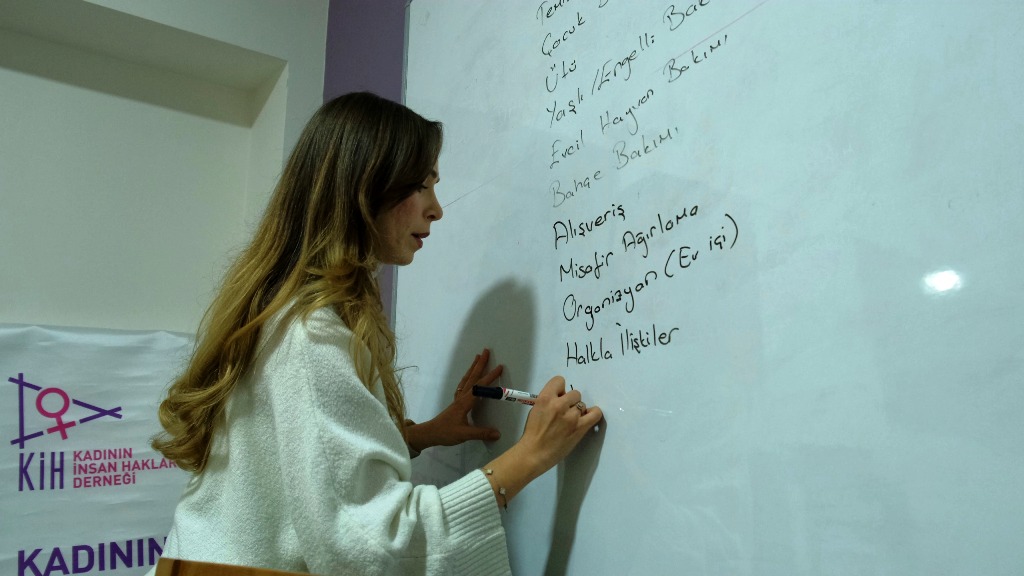 Çocuk
Ütü
Yaşlı/Engelli Bak
Evcil Hayvan Bakımı
Bahçe Bakımı
Alışveriş
Misafir Ağırlama
Organizyon (Ev içi)
Halkla İlişkiler
KİH
KADININ
İNSAN HAKLAR
DERNEĞİ
KADININ